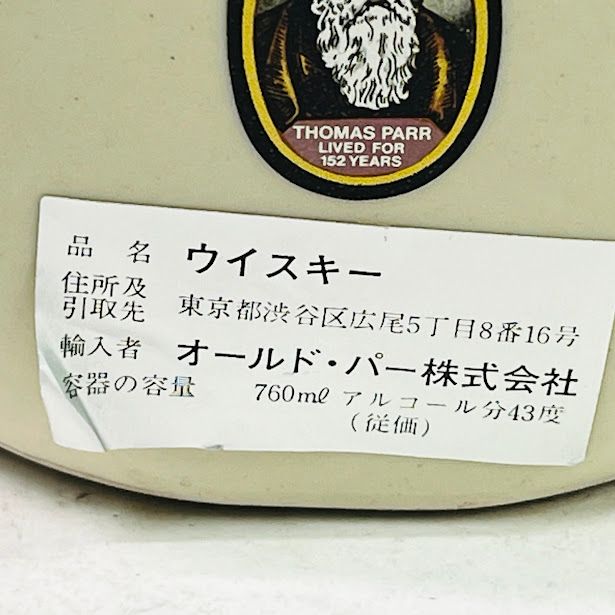 THOMAS PARR
LIVED FOR
152 YEARS
品名 ウイスキー
住所及
引取先 東京都渋谷区広尾5丁目8番16号
輸入者 オールド・パー株式会社
容器の容量 760ml アルコール分43度
(従価)